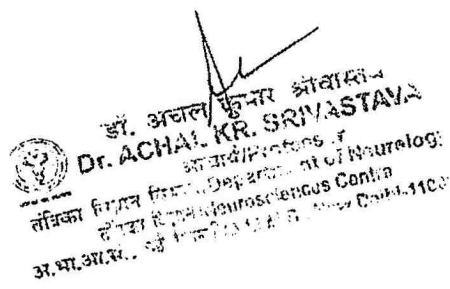 डॉ. अचल कुमार श्रीवास्तव
Dr. ACHAL KR. SRIVASTAVA
आचार्य/Professor
तंत्रिका विज्ञान विभाग/Department of Neurology
तंत्रिका Neurosciences Centre
अ.भा.आ.सं. New Delhi-1100